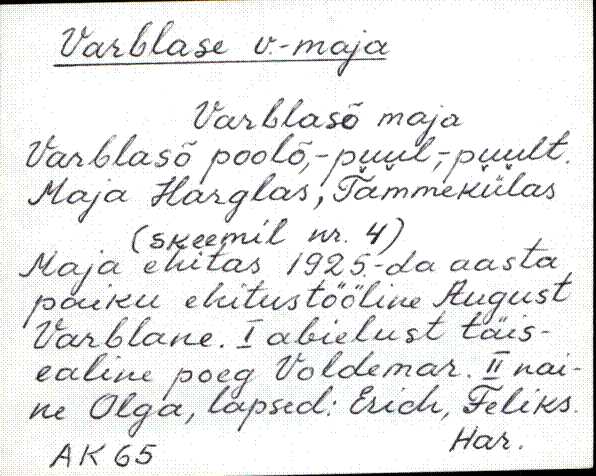 Varblase v.-maja
Varblasõ maja
Varblasõ poolõ,-puul,-puult.
Maja Harglas, Tammekülas
(skeemil nr. 4)
Maja ehitas 1925.-da aasta
paiku ehitustööline August
Varblane. I abielust täis-
ealine poeg Voldemar. II nai-
ne Olga, lapsed: Erich, Feliks.
Har.
AK 65